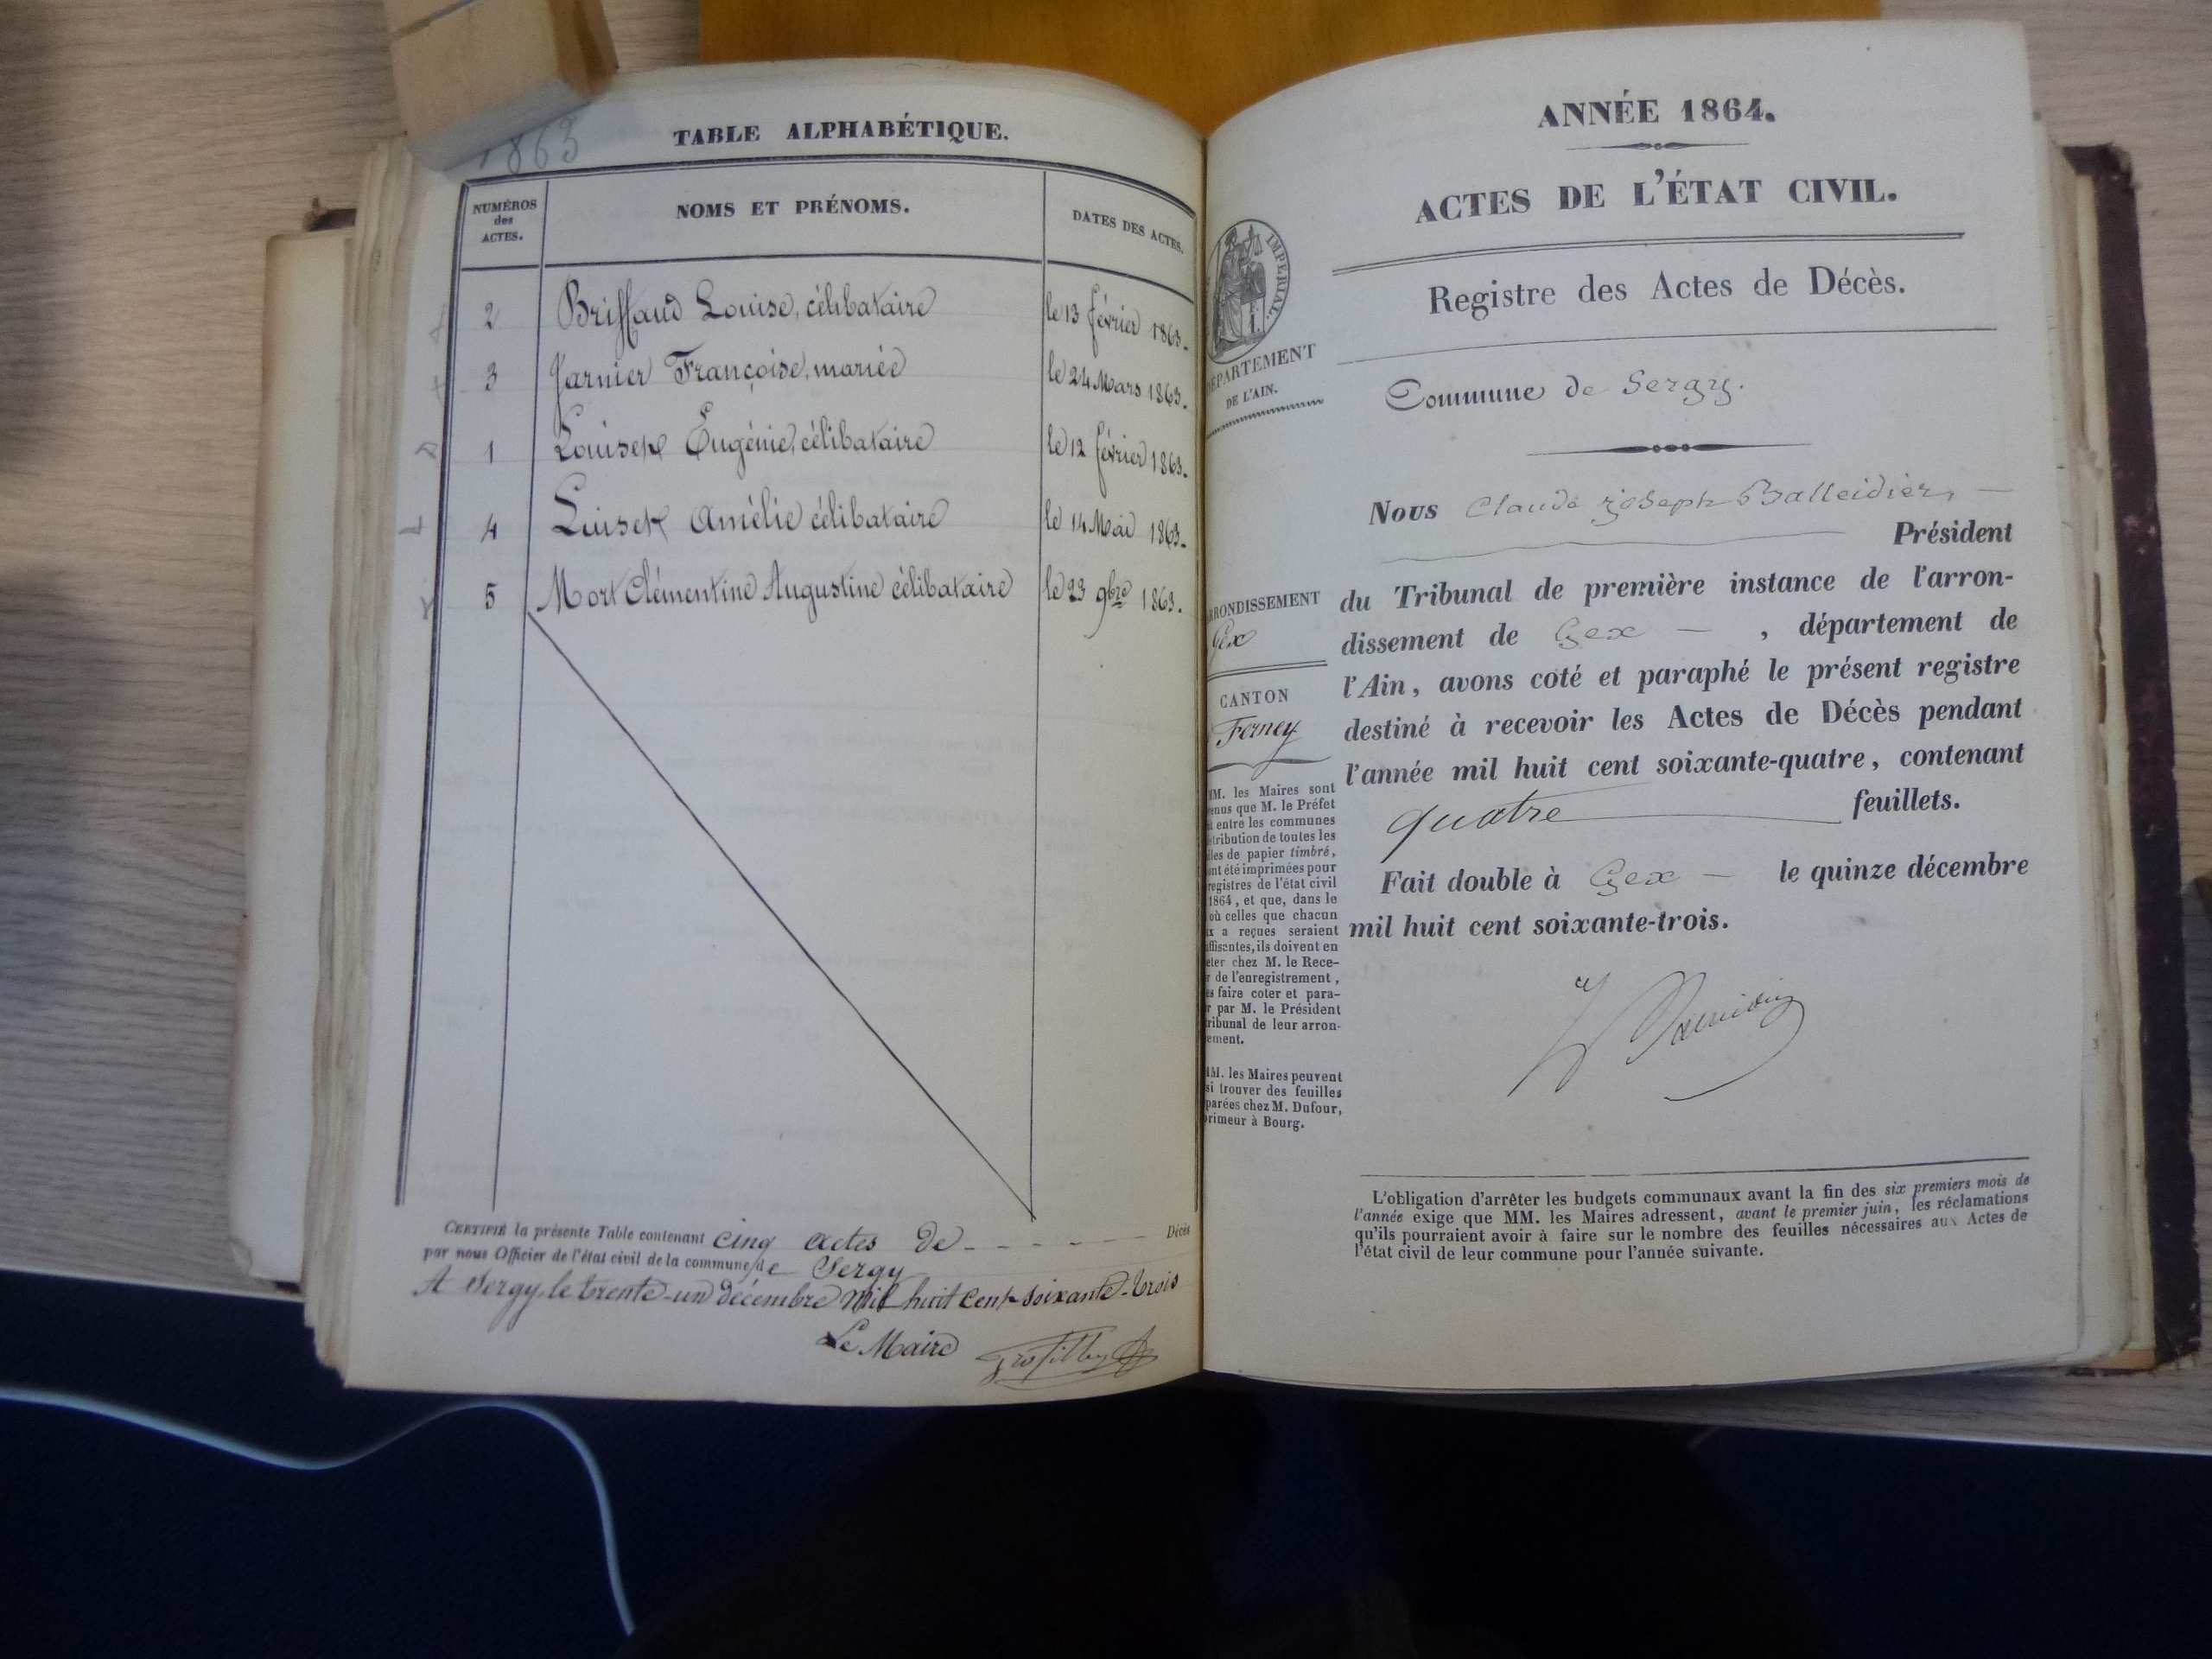 1863
TABLE ALPHABÉTIQUE.
NUMÉROS des ACTES. NOMS ET PRÉNOMS. DATES DES ACTES.
2 Briffaud Louise, célibataire le 13 février 1863.
3 Jarnier Françoise, mariée le 24 Mars 1863.
1 Louiset Eugénie, célibataire le 12 février 1863.
4 Luiset Amélie célibataire le 14 Mai 1863.
5 Mort Clémentine Augustine célibataire le 23 9bre 1863.
CERTIFIÉ la présente Table contenant cinq actes de Décès
par nous Officier de l'état civil de la commune de Sergy
A Sergy le trente-un décembre mil huit cent soixante-trois
Le Maire
ANNÉE 1864.
ACTES DE L'ÉTAT CIVIL.
Registre des Actes de Décès.
IMPÉRIAL.
DÉPARTEMENT
DE L'AIN.
Commune de Sergy.
Nous Claude Joseph Balleidier,
Président
du Tribunal de première instance de l'arron-
dissement de Gex , département de
l'Ain, avons coté et paraphé le présent registre
destiné à recevoir les Actes de Décès pendant
l'année mil huit cent soixante-quatre, contenant
quatre feuillets.
Fait double à Gex le quinze décembre
mil huit cent soixante-trois.
RRONDISSEMENT
Gex
CANTON
Ferney
MM. les Maires sont
enus que M. le Préfet
entre les communes
stribution de toutes les
lles de papier timbré,
ont été imprimées pour
registres de l'état civil
1864, et que, dans le
où celles que chacun
ux a reçues seraient
uffisantes, ils doivent en
eter chez M. le Rece-
r de l'enregistrement,
es faire coter et para-
r par M. le Président
tribunal de leur arron-
ement.
MM. les Maires peuvent
si trouver des feuilles
parées chez M. Dufour,
primeur à Bourg.
L'obligation d'arrêter les budgets communaux avant la fin des six premiers mois de
l'année exige que MM. les Maires adressent, avant le premier juin, les réclamations
qu'ils pourraient avoir à faire sur le nombre des feuilles nécessaires aux Actes de
l'état civil de leur commune pour l'année suivante.